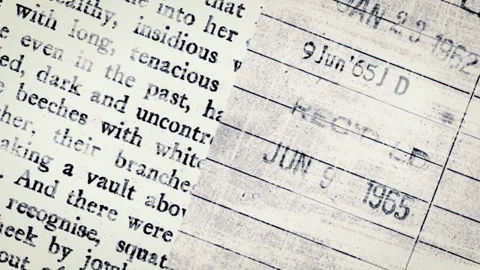 that
me into her
ealthy, insidious w
with long, tenacious
e even in the past, ha
ed, dark and uncontro
e beeches with white
her, their branches
aking a vault abov
. And there were
recognise, squat
eek by jowl
out of
JAN 23 1962
9 Jun '65 J D
REC'D LD
JUN 9 1965